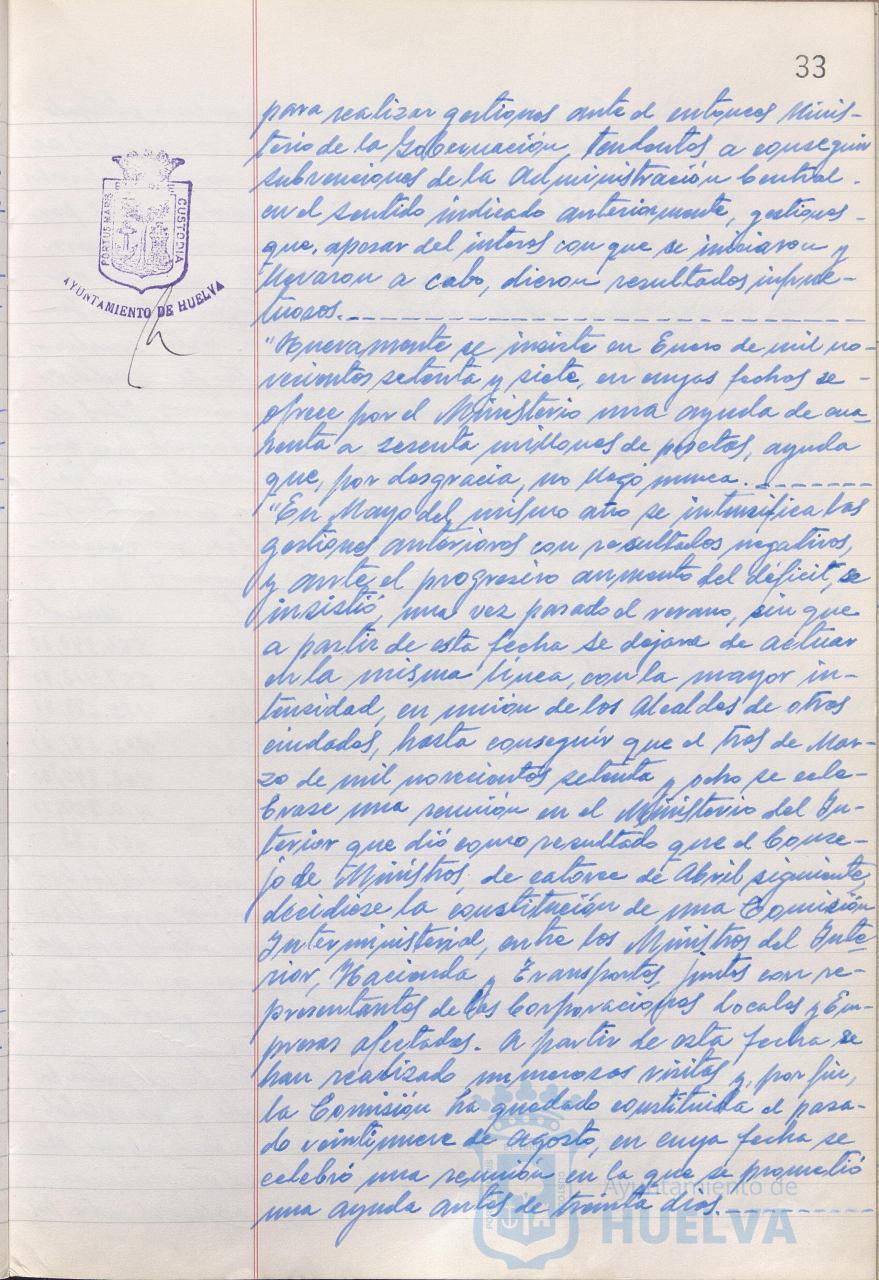 33
PORTUS MARIS
CUSTODIA
AYUNTAMIENTO DE HUELVA
para realizar gestiones ante el entonces Minis-
terio de la Gobernación, tendentes a conseguir
subvenciones de la Administración Central -
en el sentido indicado anteriormente, gestiones -
que, apesar del interes con que se iniciaron y
llevaron a cabo, dieron resultados infruc-
tuosos.
"Nuevamente se insiste en Enero de mil no-
vecientos setenta y siete, en cuyas fechas se -
ofrece por el Ministerio una ayuda de cua-
renta a sesenta millones de pesetas, ayuda
que, por desgracia, no llegó nunca.
"En Mayo del mismo año se intensifica las
gestiones anteriores con resultados negativos,
y ante el progresivo aumento del déficit, se
insistió, una vez pasado el verano, sin que
a partir de esta fecha se dejara de actuar
en la misma línea, con la mayor in-
tensidad, en unión de los Alcaldes de otras
ciudades, hasta conseguir que el tres de Mar-
zo de mil novecientos setenta y ocho se cele-
brase una reunión en el Ministerio del In-
terior que dió como resultado que el Conse-
jo de Ministros, de catorce de Abril siguiente,
decidiese la constitución de una Comisión
Interministerial, entre los Ministros del Inte-
rior, Hacienda y Transportes, juntos con re-
presentantes de las Corporaciones Locales y Em-
presas afectadas. A partir de esta fecha se
han realizado numerosas visitas y, por fin,
la Comisión ha quedado constituida el pasa-
do veintinueve de Agosto, en cuya fecha se
celebró una reunión en la que se prometió
una ayuda antes de treinta dias.
Ayuntamiento de
HUELVA